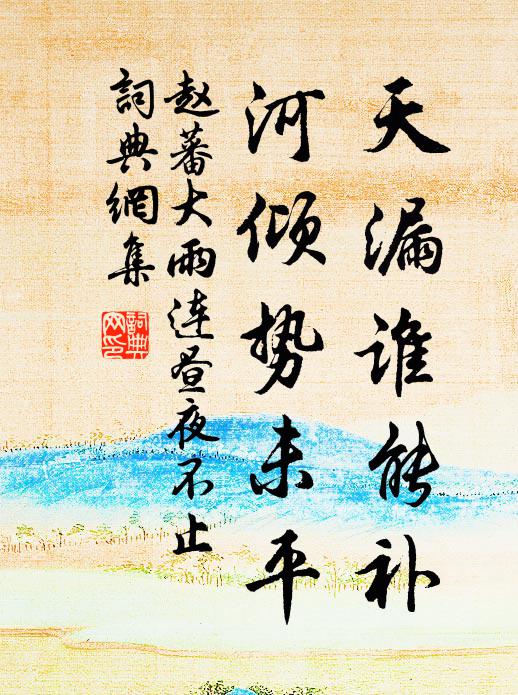 天漏谁能补
河倾势未平
赵蕃大雨连昼夜不止
詞典網集
詞典